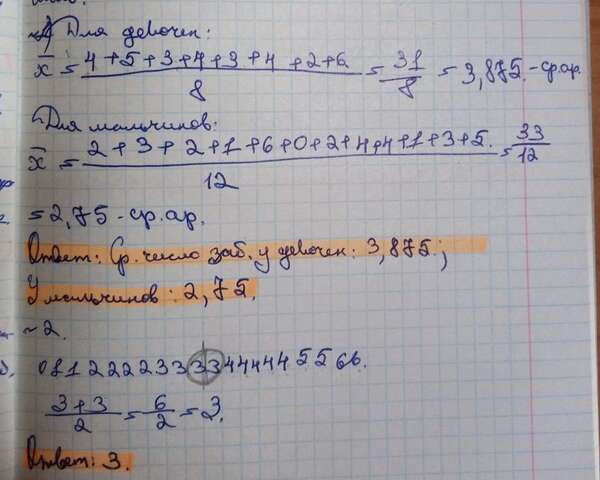 Для девочек:
x̄ = 4+5+3+4+3+4+2+6 / 8 = 31/8 = 3,875.-ср.ар.
Для мальчиков:
x̄ = 2+3+2+1+6+0+2+4+4+1+3+5. / 12 = 33/12
= 2,75 - ср.ар.
Ответ: Ср. число заб. у девочек: 3,875.;
У мальчиков: 2,75.
~2.
011222233333444445566.
3+3/2 = 6/2 = 3.
Ответ: 3.